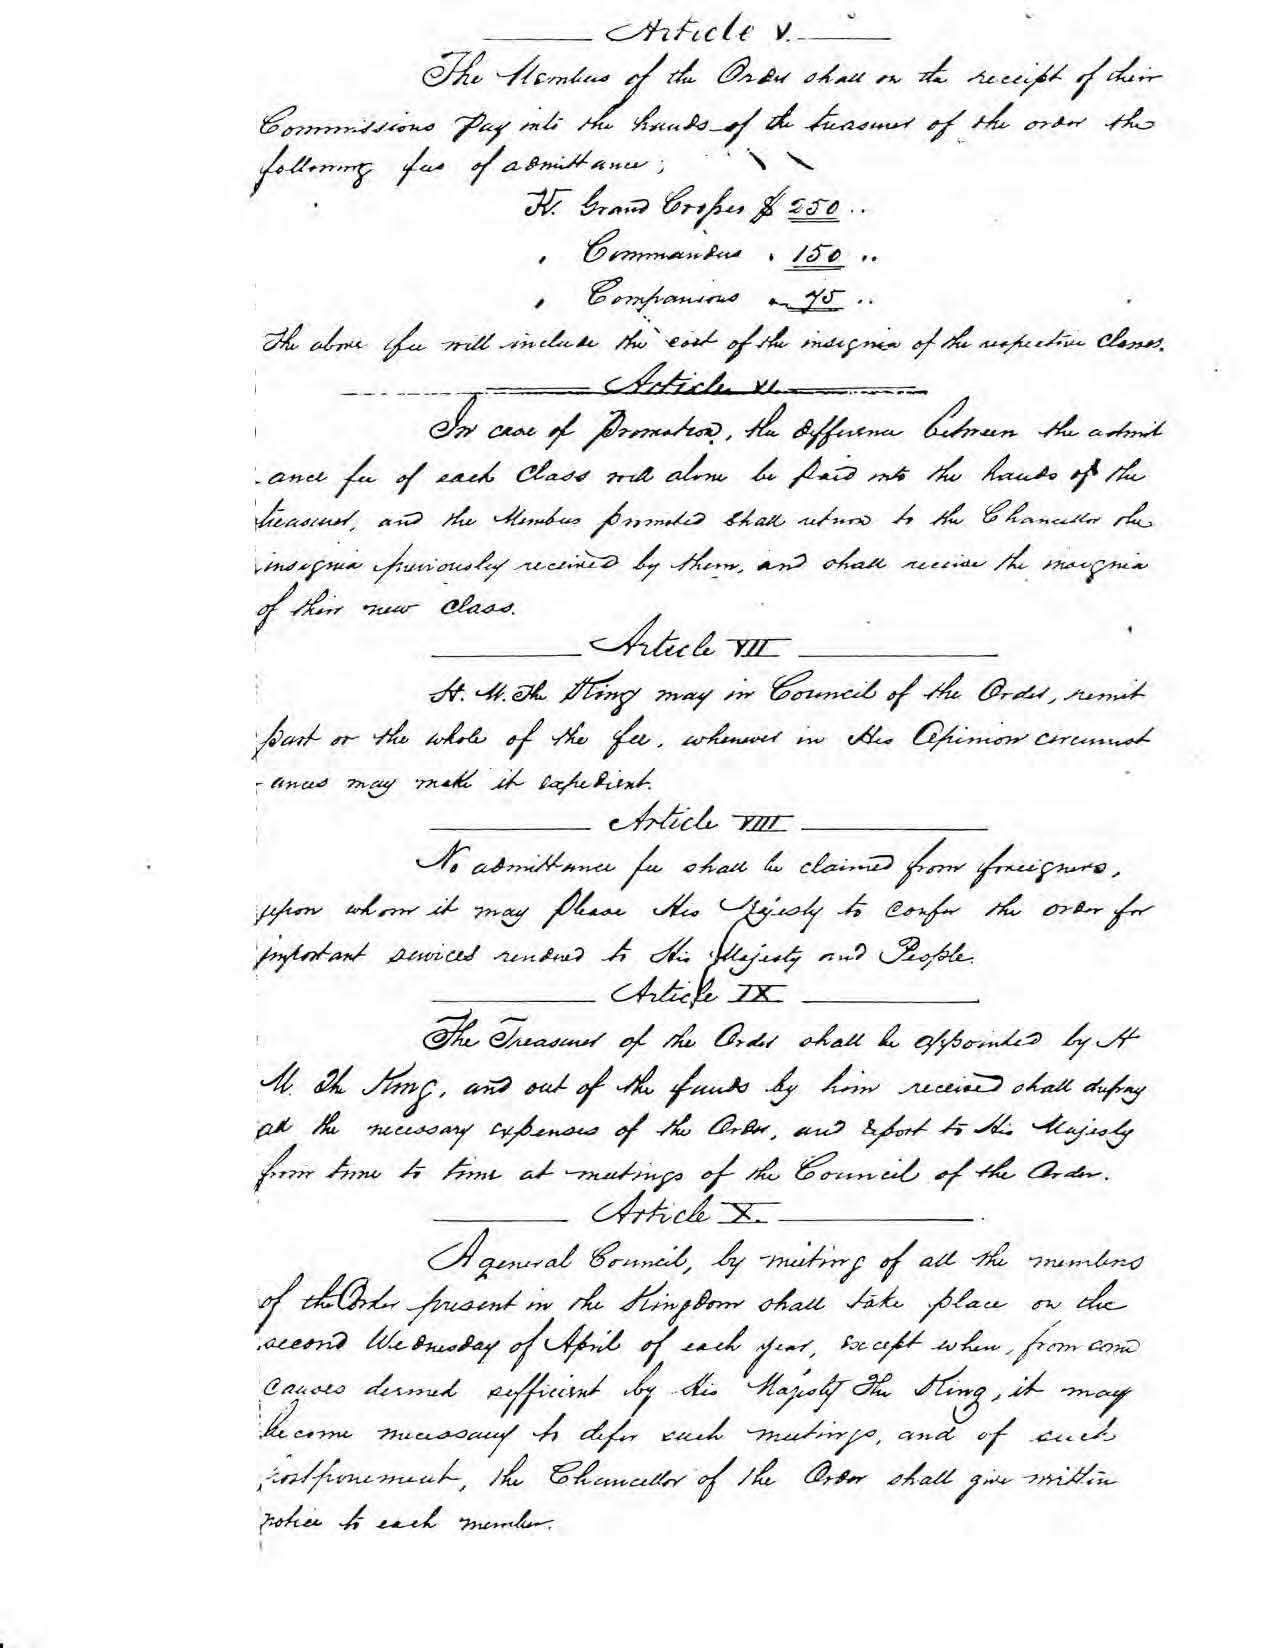 Article V.
The Members of the Order shall on the receipt of their
Commissions Pay into the hands of the treasurer of the order the
following fees of admittance;
K. Grand Crosses $ 250 ..
" Commanders " 150 ..
" Companions " 75 ..
The above fee will include the cost of the insignia of the respective Classes.
Article VI.
In case of Promotion, the difference between the admit
-ance fee of each Class will alone be Paid into the hands of the
treasurer, and the Members promoted shall return to the Chancellor the
insignia previously received by them, and shall receive the insignia
of their new Class.
Article VII
H. M. The King may in Council of the Order, remit
part or the whole of the fee, whenever in His Opinion circumst
-ances may make it expedient.
Article VIII
No admittance fee shall be claimed from foreigners,
upon whom it may Please His Majesty to confer the order for
important services rendered to His Majesty and People.
Article IX
The Treasurer of the Order shall be appointed by H
M. The King, and out of the funds by him received shall defray
all the necessary expenses of the Order, and report to His Majesty
from time to time at meetings of the Council of the Order.
Article X.
A general Council, by meeting of all the members
of the Order present in the Kingdom shall take place on the
second Wednesday of April of each year, except when, from some
causes deemed sufficient by His Majesty The King, it may
become necessary to defer such meetings, and of such
postponement, the Chancellor of the Order shall give written
notice to each member.